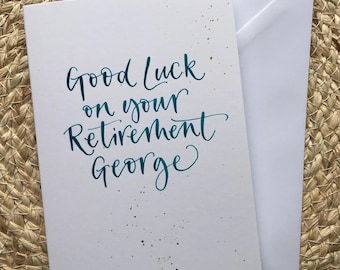 Good Luck
on your
Retirement
George